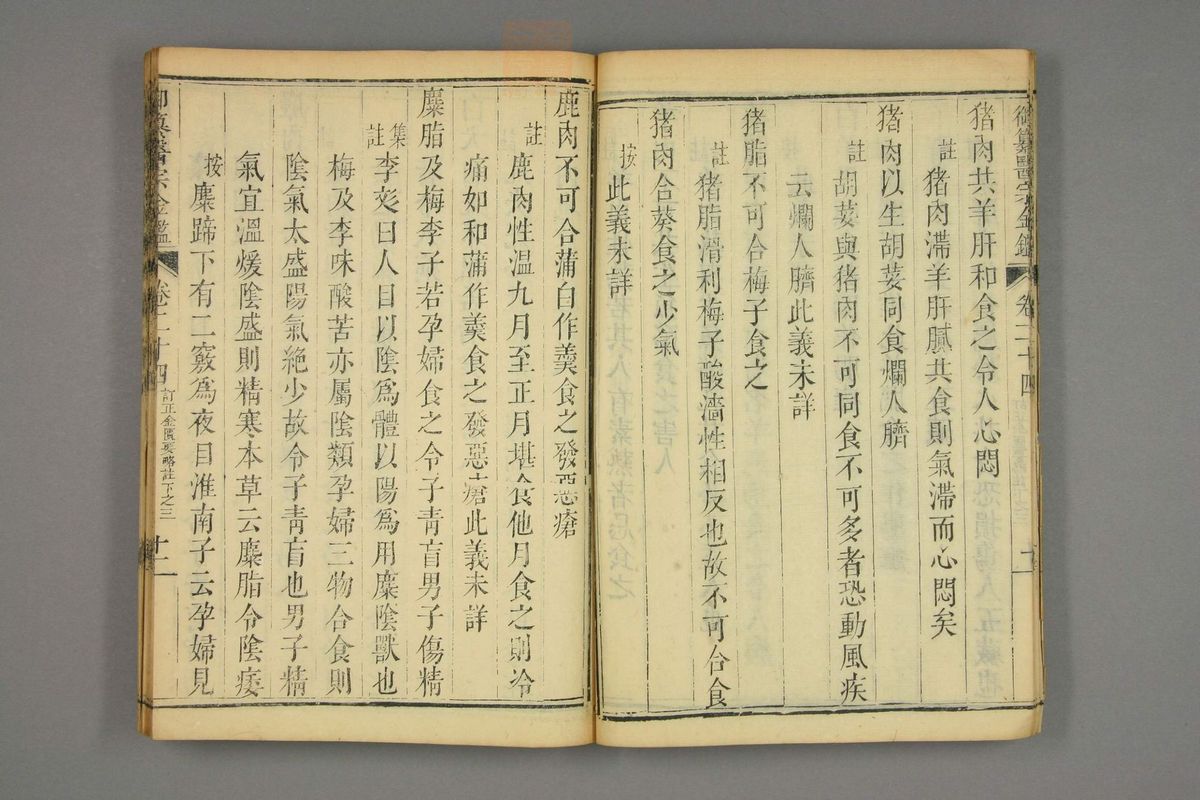 御纂醫宗金鑑 卷二十四
猪肉共羊肝和食之令人心悶
註 猪肉滯羊肝膩共食則氣滯而心悶矣
猪肉以生胡荽同食爛人臍
註 胡荽與猪肉不可同食不可多者恐動風疾
云爛人臍此義未詳
猪脂不可合梅子食之
註 猪脂滑利梅子酸濇性相反也故不可合食
猪肉合葵食之少氣
按 此義未詳
鹿肉不可合蒲白作羹食之發惡瘡
註 鹿肉性溫九月至正月堪食他月食之則冷
痛如和蒲作羹食之發惡瘡此義未詳
麋脂及梅李子若孕婦食之令子靑盲男子傷精
集註 李彣曰人目以陰爲體以陽爲用麋陰獸也
梅及李味酸苦亦屬陰類孕婦三物合食則
陰氣太盛陽氣絶少故令子靑盲也男子精
氣宜溫煖陰盛則精寒本草云麋脂令陰痿
按 麋蹄下有二竅爲夜目淮南子云孕婦見
御纂醫宗金鑑 卷二十四 訂正金匱要略註下之三 十二